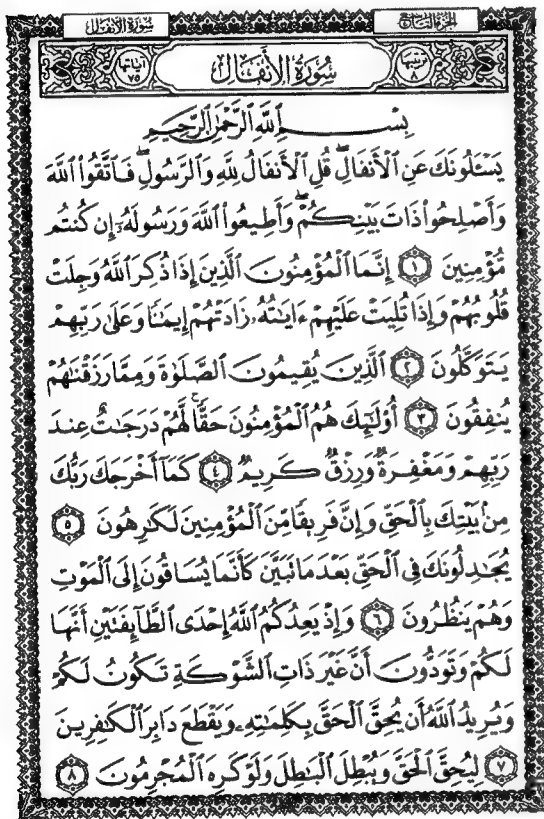 الجزء التاسع
سورة الأنفال
ترتيبها ٨
سُورَةُ الأَنفَالِ
آياتها ٧٥
بِسْمِ اللَّهِ الرَّحْمَٰنِ الرَّحِيمِ
يَسْـَٔلُونَكَ عَنِ الْأَنفَالِ ۖ قُلِ الْأَنفَالُ لِلَّهِ وَالرَّسُولِ ۖ فَاتَّقُوا اللَّهَ
وَأَصْلِحُوا ذَاتَ بَيْنِكُمْ ۖ وَأَطِيعُوا اللَّهَ وَرَسُولَهُ إِن كُنتُم
مُّؤْمِنِينَ ١ إِنَّمَا الْمُؤْمِنُونَ الَّذِينَ إِذَا ذُكِرَ اللَّهُ وَجِلَتْ
قُلُوبُهُمْ وَإِذَا تُلِيَتْ عَلَيْهِمْ ءَايَٰتُهُ زَادَتْهُمْ إِيمَٰنًا وَعَلَىٰ رَبِّهِمْ
يَتَوَكَّلُونَ ٢ الَّذِينَ يُقِيمُونَ الصَّلَوٰةَ وَمِمَّا رَزَقْنَٰهُمْ
يُنفِقُونَ ٣ أُو۟لَٰٓئِكَ هُمُ الْمُؤْمِنُونَ حَقًّا ۚ لَّهُمْ دَرَجَٰتٌ عِندَ
رَبِّهِمْ وَمَغْفِرَةٌ وَرِزْقٌ كَرِيمٌ ٤ كَمَآ أَخْرَجَكَ رَبُّكَ
مِنۢ بَيْتِكَ بِالْحَقِّ وَإِنَّ فَرِيقًا مِّنَ الْمُؤْمِنِينَ لَكَٰرِهُونَ ٥
يُجَٰدِلُونَكَ فِي الْحَقِّ بَعْدَ مَا تَبَيَّنَ كَأَنَّمَا يُسَاقُونَ إِلَى الْمَوْتِ
وَهُمْ يَنظُرُونَ ٦ وَإِذْ يَعِدُكُمُ اللَّهُ إِحْدَى الطَّآئِفَتَيْنِ أَنَّهَا
لَكُمْ وَتَوَدُّونَ أَنَّ غَيْرَ ذَاتِ الشَّوْكَةِ تَكُونُ لَكُمْ
وَيُرِيدُ اللَّهُ أَن يُحِقَّ الْحَقَّ بِكَلِمَٰتِهِ وَيَقْطَعَ دَابِرَ الْكَٰفِرِينَ
٧ لِيُحِقَّ الْحَقَّ وَيُبْطِلَ الْبَٰطِلَ وَلَوْ كَرِهَ الْمُجْرِمُونَ ٨